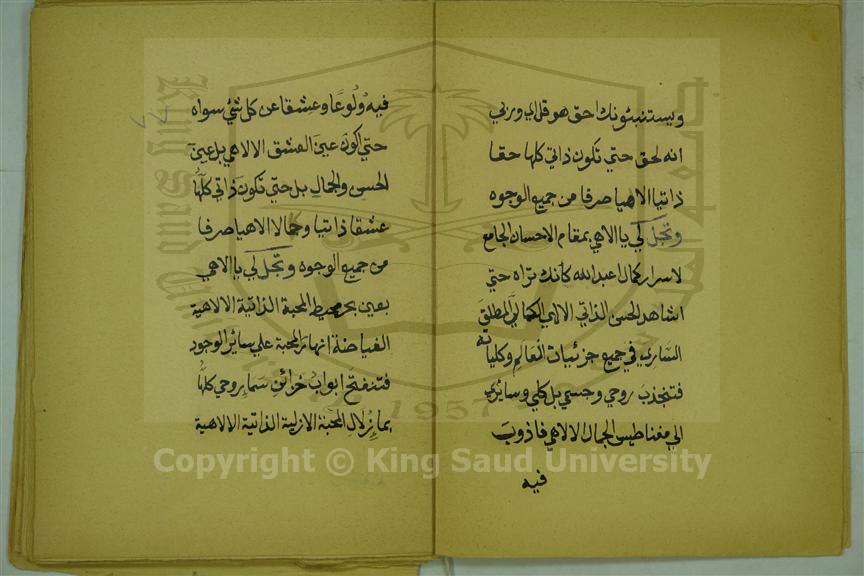 ويستنبئونك احق هو قل اي وربي
انه لحق حتي تكون ذاتي كلها حقا
ذاتيا الاهيا صرفا من جميع الوجوه
وتجل لي يا الاهي بمقام الاحسان الجامع
لاسرار كمال اعبد الله كانك تراه حتي
اشاهد الحسن الذاتي الالهي الكمالي المطلق
الساري في جميع جزئيات العالم وكلياته
فتنجذب روحي وجسمي بل كلي وسائري
الي مغناطيس الجمال الالاهي فاذوب
فيه
فيه ولوعا وعشقا عن كل شئ سواه
حتي اكون عين العشق الالاهي بل عين
الحسن والجمال بل حتي تكون ذاتي كلها
عشقا ذاتيا وجمالا الاهيا صرفا
من جميع الوجوه وتجل لي يا الاهي
بعين بحر محيط المحبة الذاتية الالاهية
الفياضة انهار المحبة علي سائر الوجود
فتنفتح ابواب خزائن سما روحي كلها
بما زلال المحبة الازلية الذاتية الالاهية
٧٧
Copyright © King Saud University
King Saud University
1957